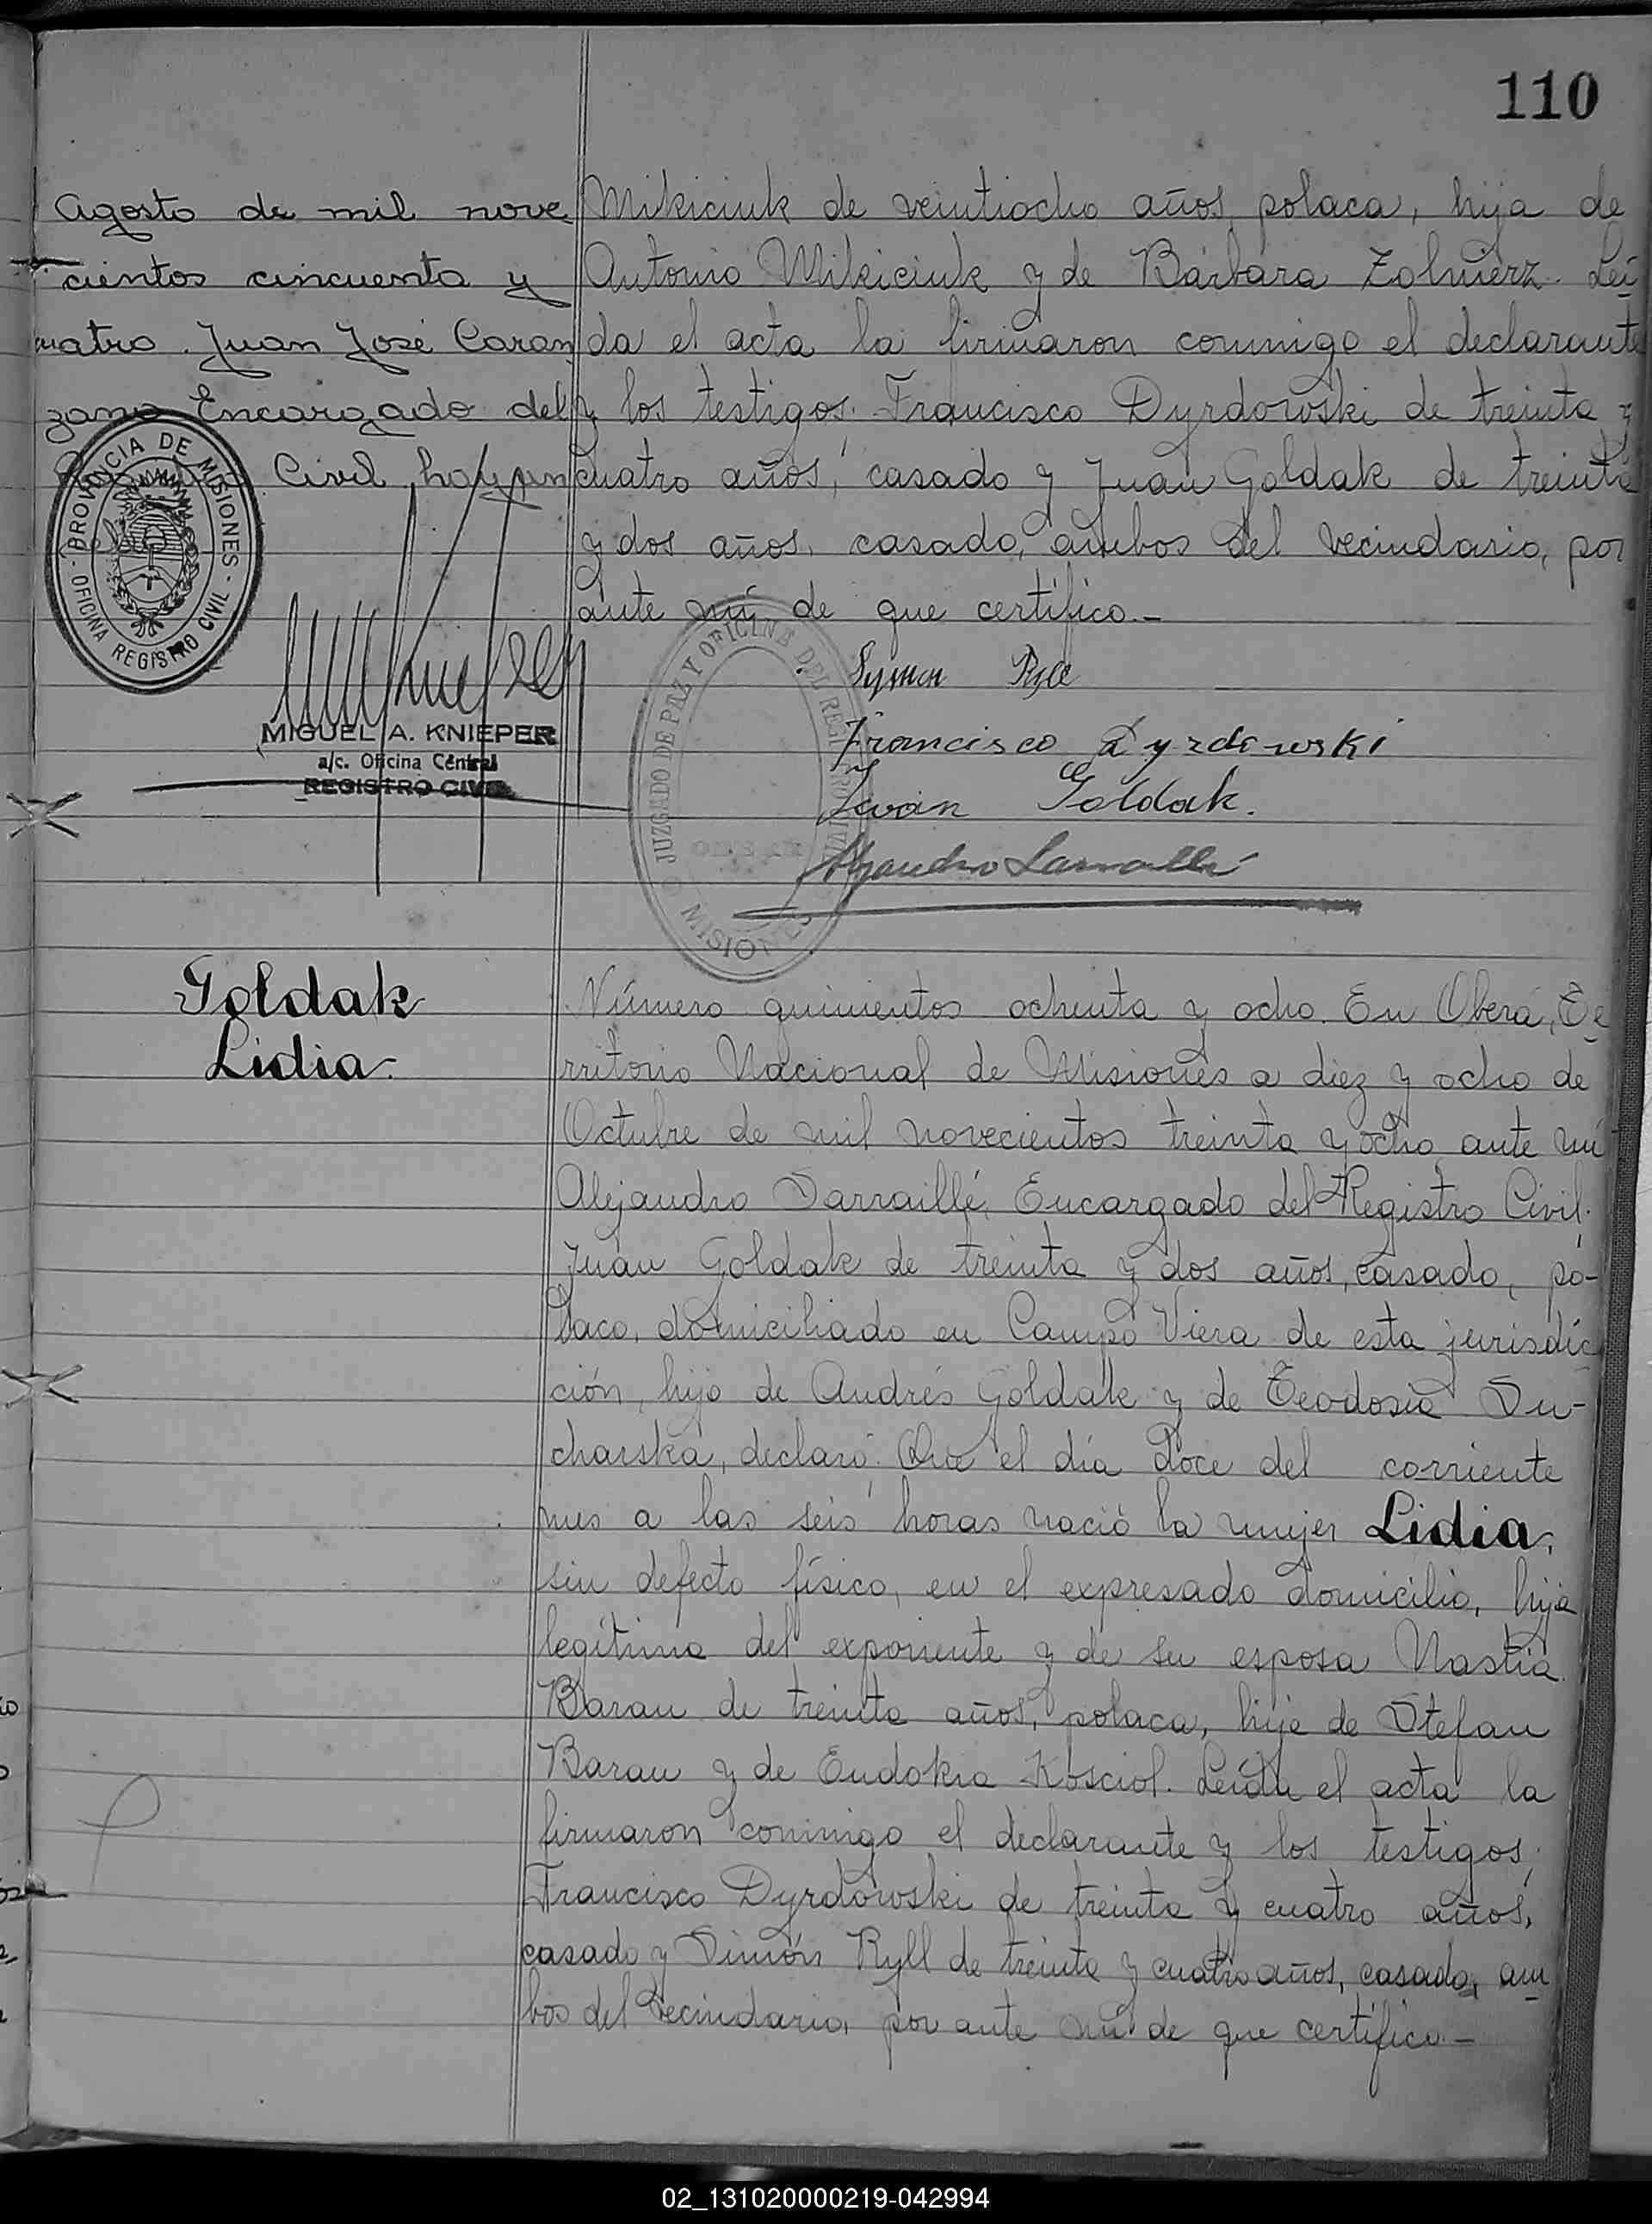 110
Agosto de mil nove
cientos cincuenta y
cuatro. Juan José Caran
zano Encargado del
Civil, hay un
PROVINCIA DE MISIONES
OFICINA REGISTRO CIVIL
MIGUEL A. KNIEPER
a/c. Oficina Central
REGISTRO CIVIL
Mikiciuk de veintiocho años, polaca, hija de
Antonio Mikiciuk y de Bárbara Zolnierz. Leí
da el acta la firmaron conmigo el declarante
y los testigos: Francisco Dyrdowski de treinta y
cuatro años, casado y Juan Goldak de treinta
y dos años, casado, ambos del vecindario, por
ante mí de que certifico.-
JUZGADO DE PAZ Y OFICINA DEL REGISTRO CIVIL
MISIONES
Szymon Ryll
Francisco Dyrdowski
Iwan Goldak.
Alejandro Darraillé
Goldak
Lidia.
Número quinientos ochenta y ocho. En Oberá, Te
rritorio Nacional de Misiones a diez y ocho de
Octubre de mil novecientos treinta y ocho, ante mí
Alejandro Darraillé, Encargado del Registro Civil.
Juan Goldak de treinta y dos años, casado, po-
laco, domiciliado en Campo Viera de esta jurisdic
ción, hijo de Andrés Goldak y de Teodosia Su-
charska, declaró: Que el día doce del corriente
mes a las seis horas nació la mujer Lidia,
sin defecto físico, en el expresado domicilio, hija
legítima del exponente y de su esposa Nastia
Baran de treinta años, polaca, hija de Stefan
Baran y de Eudokia Kosciol. Leída el acta la
firmaron conmigo el declarante y los testigos:
Francisco Dyrdowski de treinta y cuatro años,
casado y Simón Ryll de treinta y cuatro años, casado, am
bos del vecindario, por ante mí de que certifico.-
02_131020000219-042994